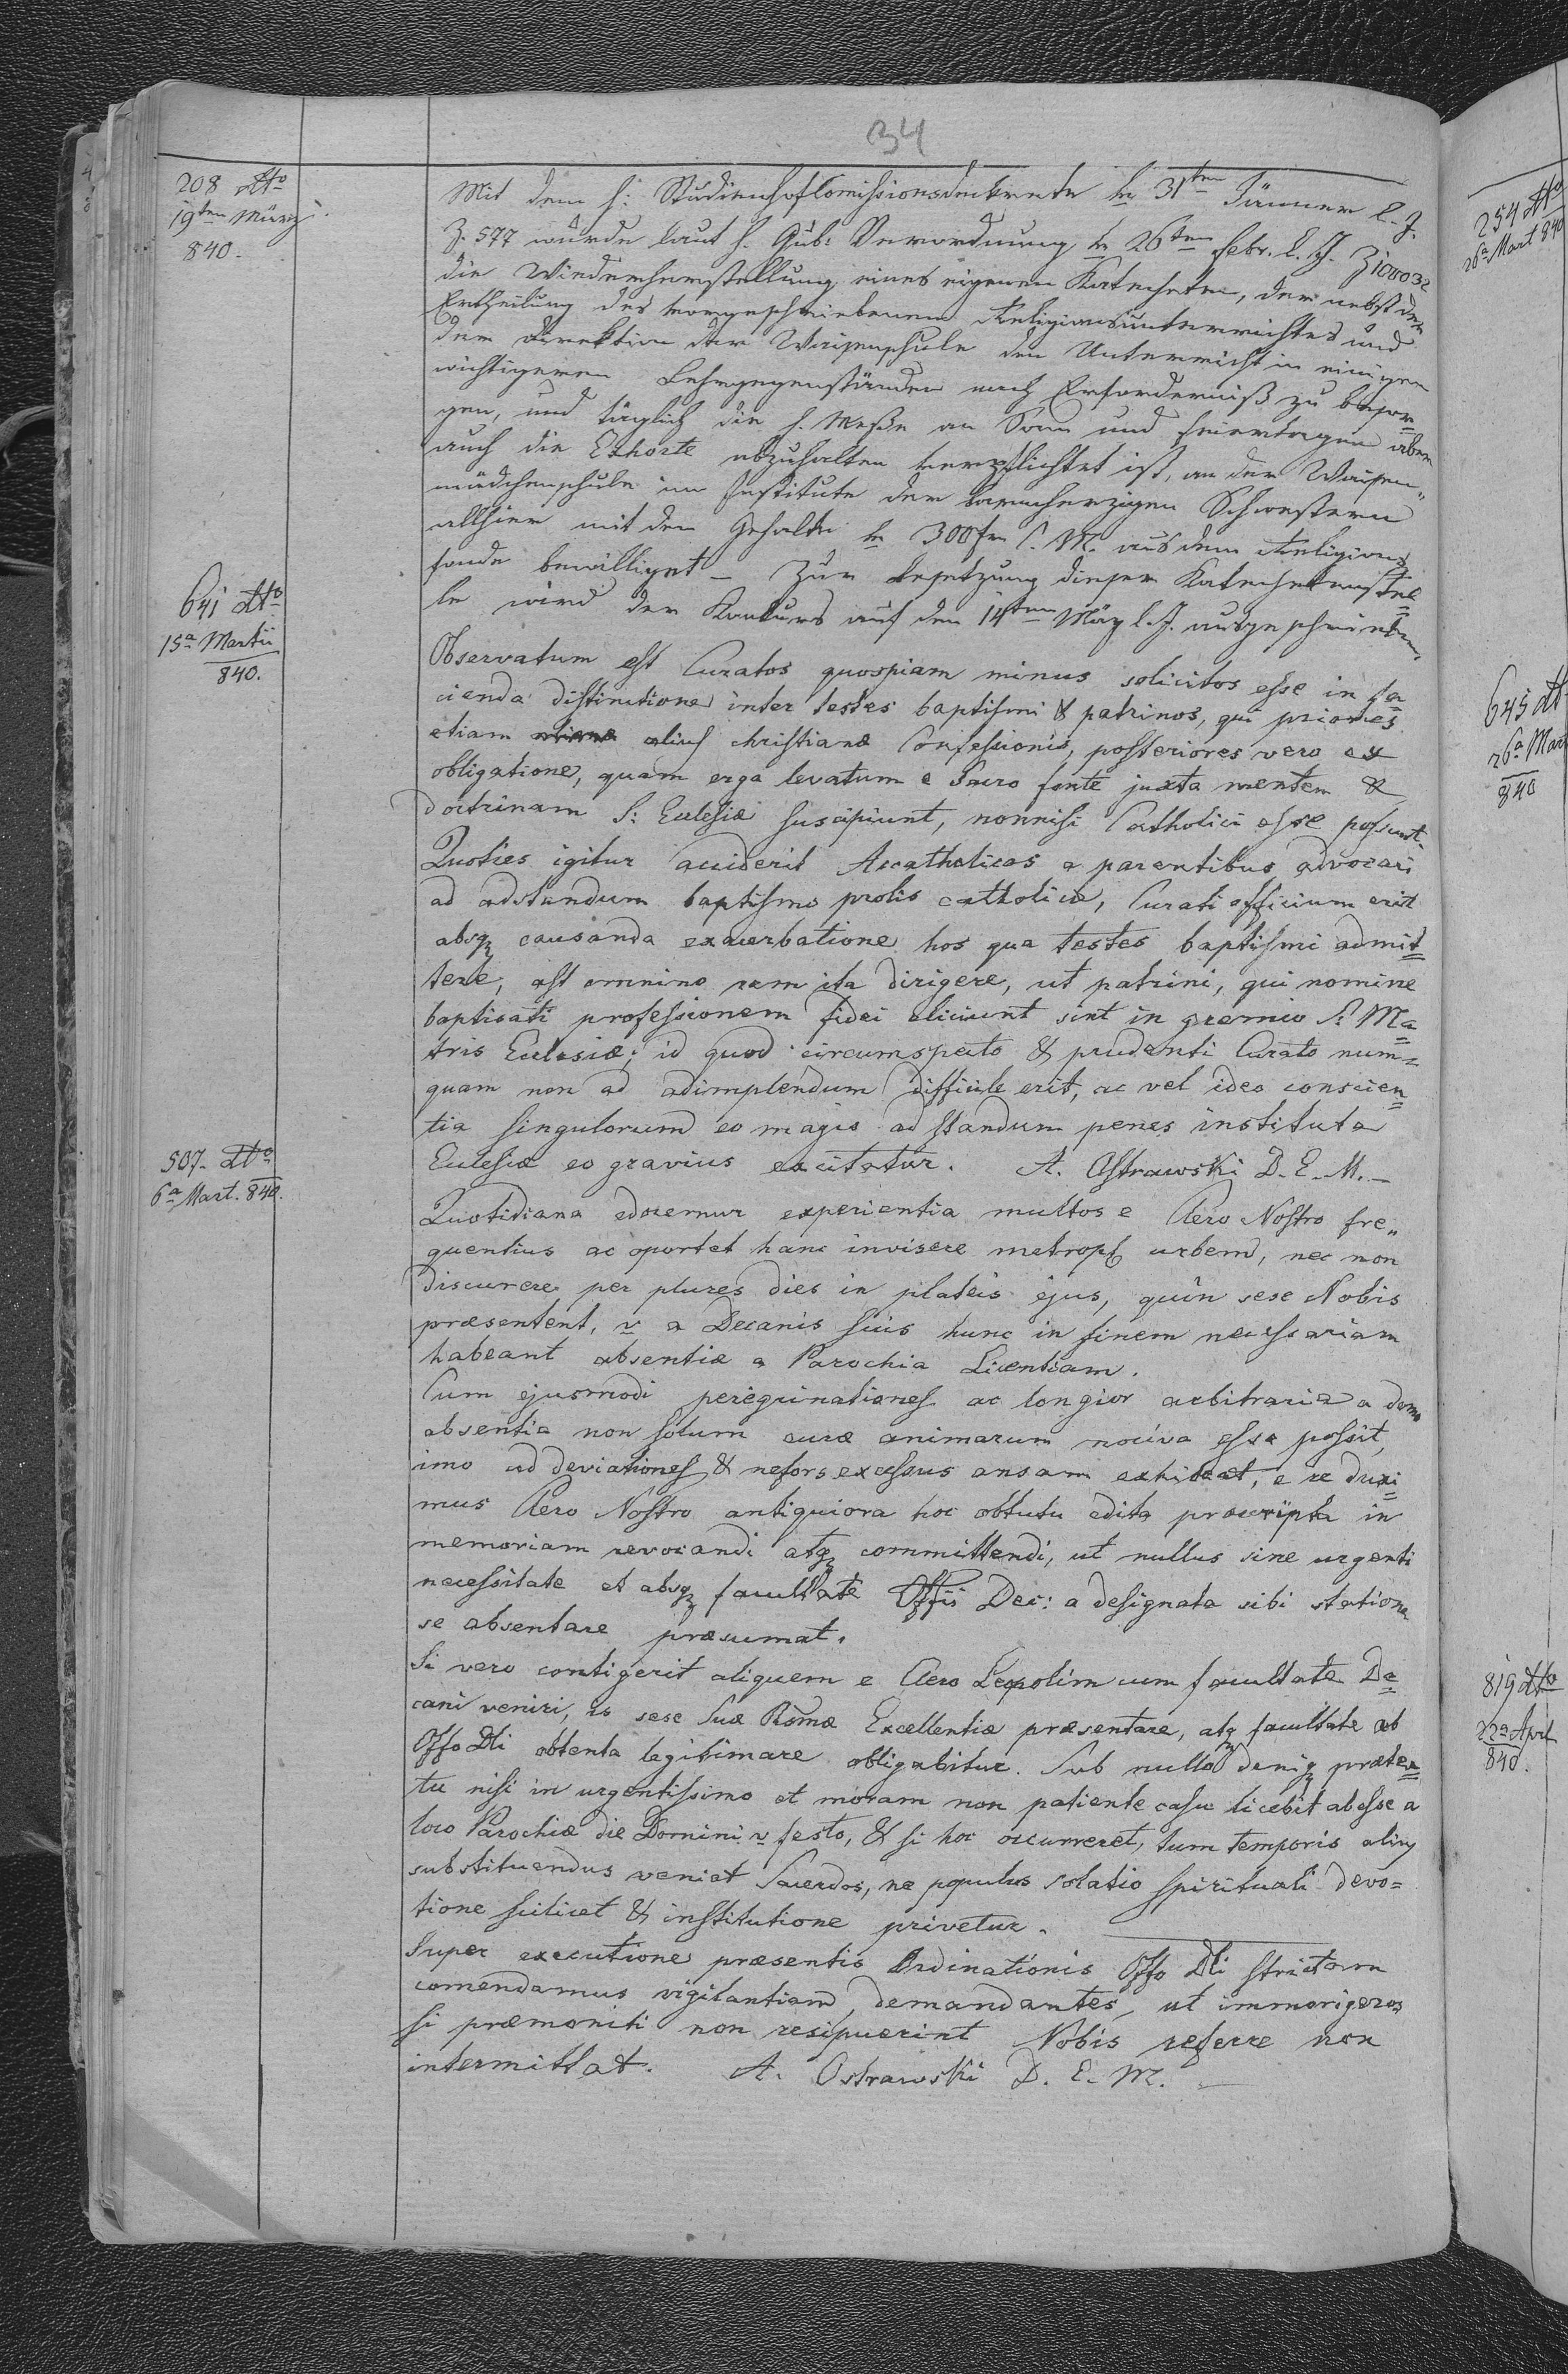 34
208 dto
19ten März
840.
Mit dem h: Studienhofkomissionsdekrete v 31ten Jänner l. J.
Z. 577 wurde laut h. Gub: Verordnung v 26ten Febr. l. J.
die Wiederherstellung eines eigenen Katecheten, der nebst der
Ertheilung des vorgeschriebenen Religionsunterrichtes und
der Direktion der Waisenschule den Unterricht in einigen
wichtigeren Lehrgegenständen nach Erforderniß zu besor=
gen, und täglich die h. Meße an Sonn und Feiertagen aber
auch die Exhorte abzuhalten verpflichtet ist, an der Waisen„
mädchenschule im Institute der barmherzigen Schwestern
allhier mit dem Gehalte v 300 fr C. M. aus dem Religions
fonde bewilligt – Zur Besetzung dieser Katechetenstel=
le wird der Konkurs auf den 14ten März l. J. ausgeschrieben
641 dto
15a Martii
840.
Observatum est Curatos quospiam minus solicitos esse in fa
cienda distinctione inter testes baptismi & patrinos, qui priores
etiam alius christianæ Confessionis, posteriores vero ex
obligatione, quam erga levatum e Sacro fonte juxta mentem &
doctrinam S: Eclesiæ suscipiunt, nonnisi Catholici esse possunt.
Quoties igitur acciderit Accatholicos a parentibus advocari
ad adstandum baptismo prolis catholicæ, Curati officium erit
absq causanda exacerbatione hos qua testes baptismi admit=
tere, ast omnino rem ita dirigere, ut patrini, qui nomine
baptisati professionem fidei eliciunt sint in gremio S: Ma=
tris Eclesiæ; id quod circumspecto & prudenti Curato num=
quam non ad adimplendum difficile erit, ac vel ideo conscien=
tia singulorum eo magis ad standum penes instituta
Eclesiæ eo gravius excitetur. A. Ostrawski D. E. M. –
507. dto
6a Mart. 840.
Quotidiana edocemur experientia multos e Clero Nostro fre„
quentius ac oportet hanc invisere metropl urbem, nec non
discurere per plures dies in plateis ejus, quin sese Nobis
præsentent, v a Decanis suis hunc in finem necessariam
habeant absentiæ a Parochia Licentiam.
Cum ejusmodi peregrinationes ac longior arbitraria a domo
absentia non solum curæ animarum nociva esse possit,
imo ad deviationes & nefors excessus ansam exhibeat, e re duxi=
mus Clero Nostro antiquiora hoc obtutu edita præscripta in
memoriam revocandi atq committendi, ut nullus sine urgenti
necessitate et absq facultate Offii Dec: a designata sibi statione
se absentare præsumat.
Si vero contigerit aliquem e Clero Leopolim cum facultate De=
cani veniri, is sese Suæ Rsmæ Excellentiæ præsentare, atq facultate ab
Offo Dli obtenta legitimare obligabitur. Sub nullo deniq prætex=
tu nisi in urgentissimo et moram non patiente casu licebit abesse a
loco Parochiæ die Domini v festo, & si hoc occurreret, tum temporis alius
substituendus veniat Sacerdos, ne populus solatio spirituali devo=
tione scilicet & institutione privetur.
Super executione præsentis Ordinationis Offo Dli strictam
comendamus vigilantiam, demandantes, ut immorigeros
si præmoniti non resipuerint Nobis referre non
intermittat. A. Ostrawski D. E. M. –
254 dto
26a Mart 840
645 dt
26a Mart
840
819 dto
22a April
840.